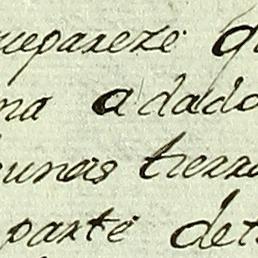 quepareze q
na adado
unas tierra
parte det